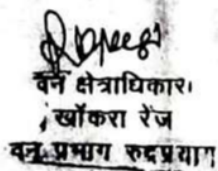 वन क्षेत्राधिकारी
खाँकरा रेंज
वन प्रभाग रुद्रप्रयाग